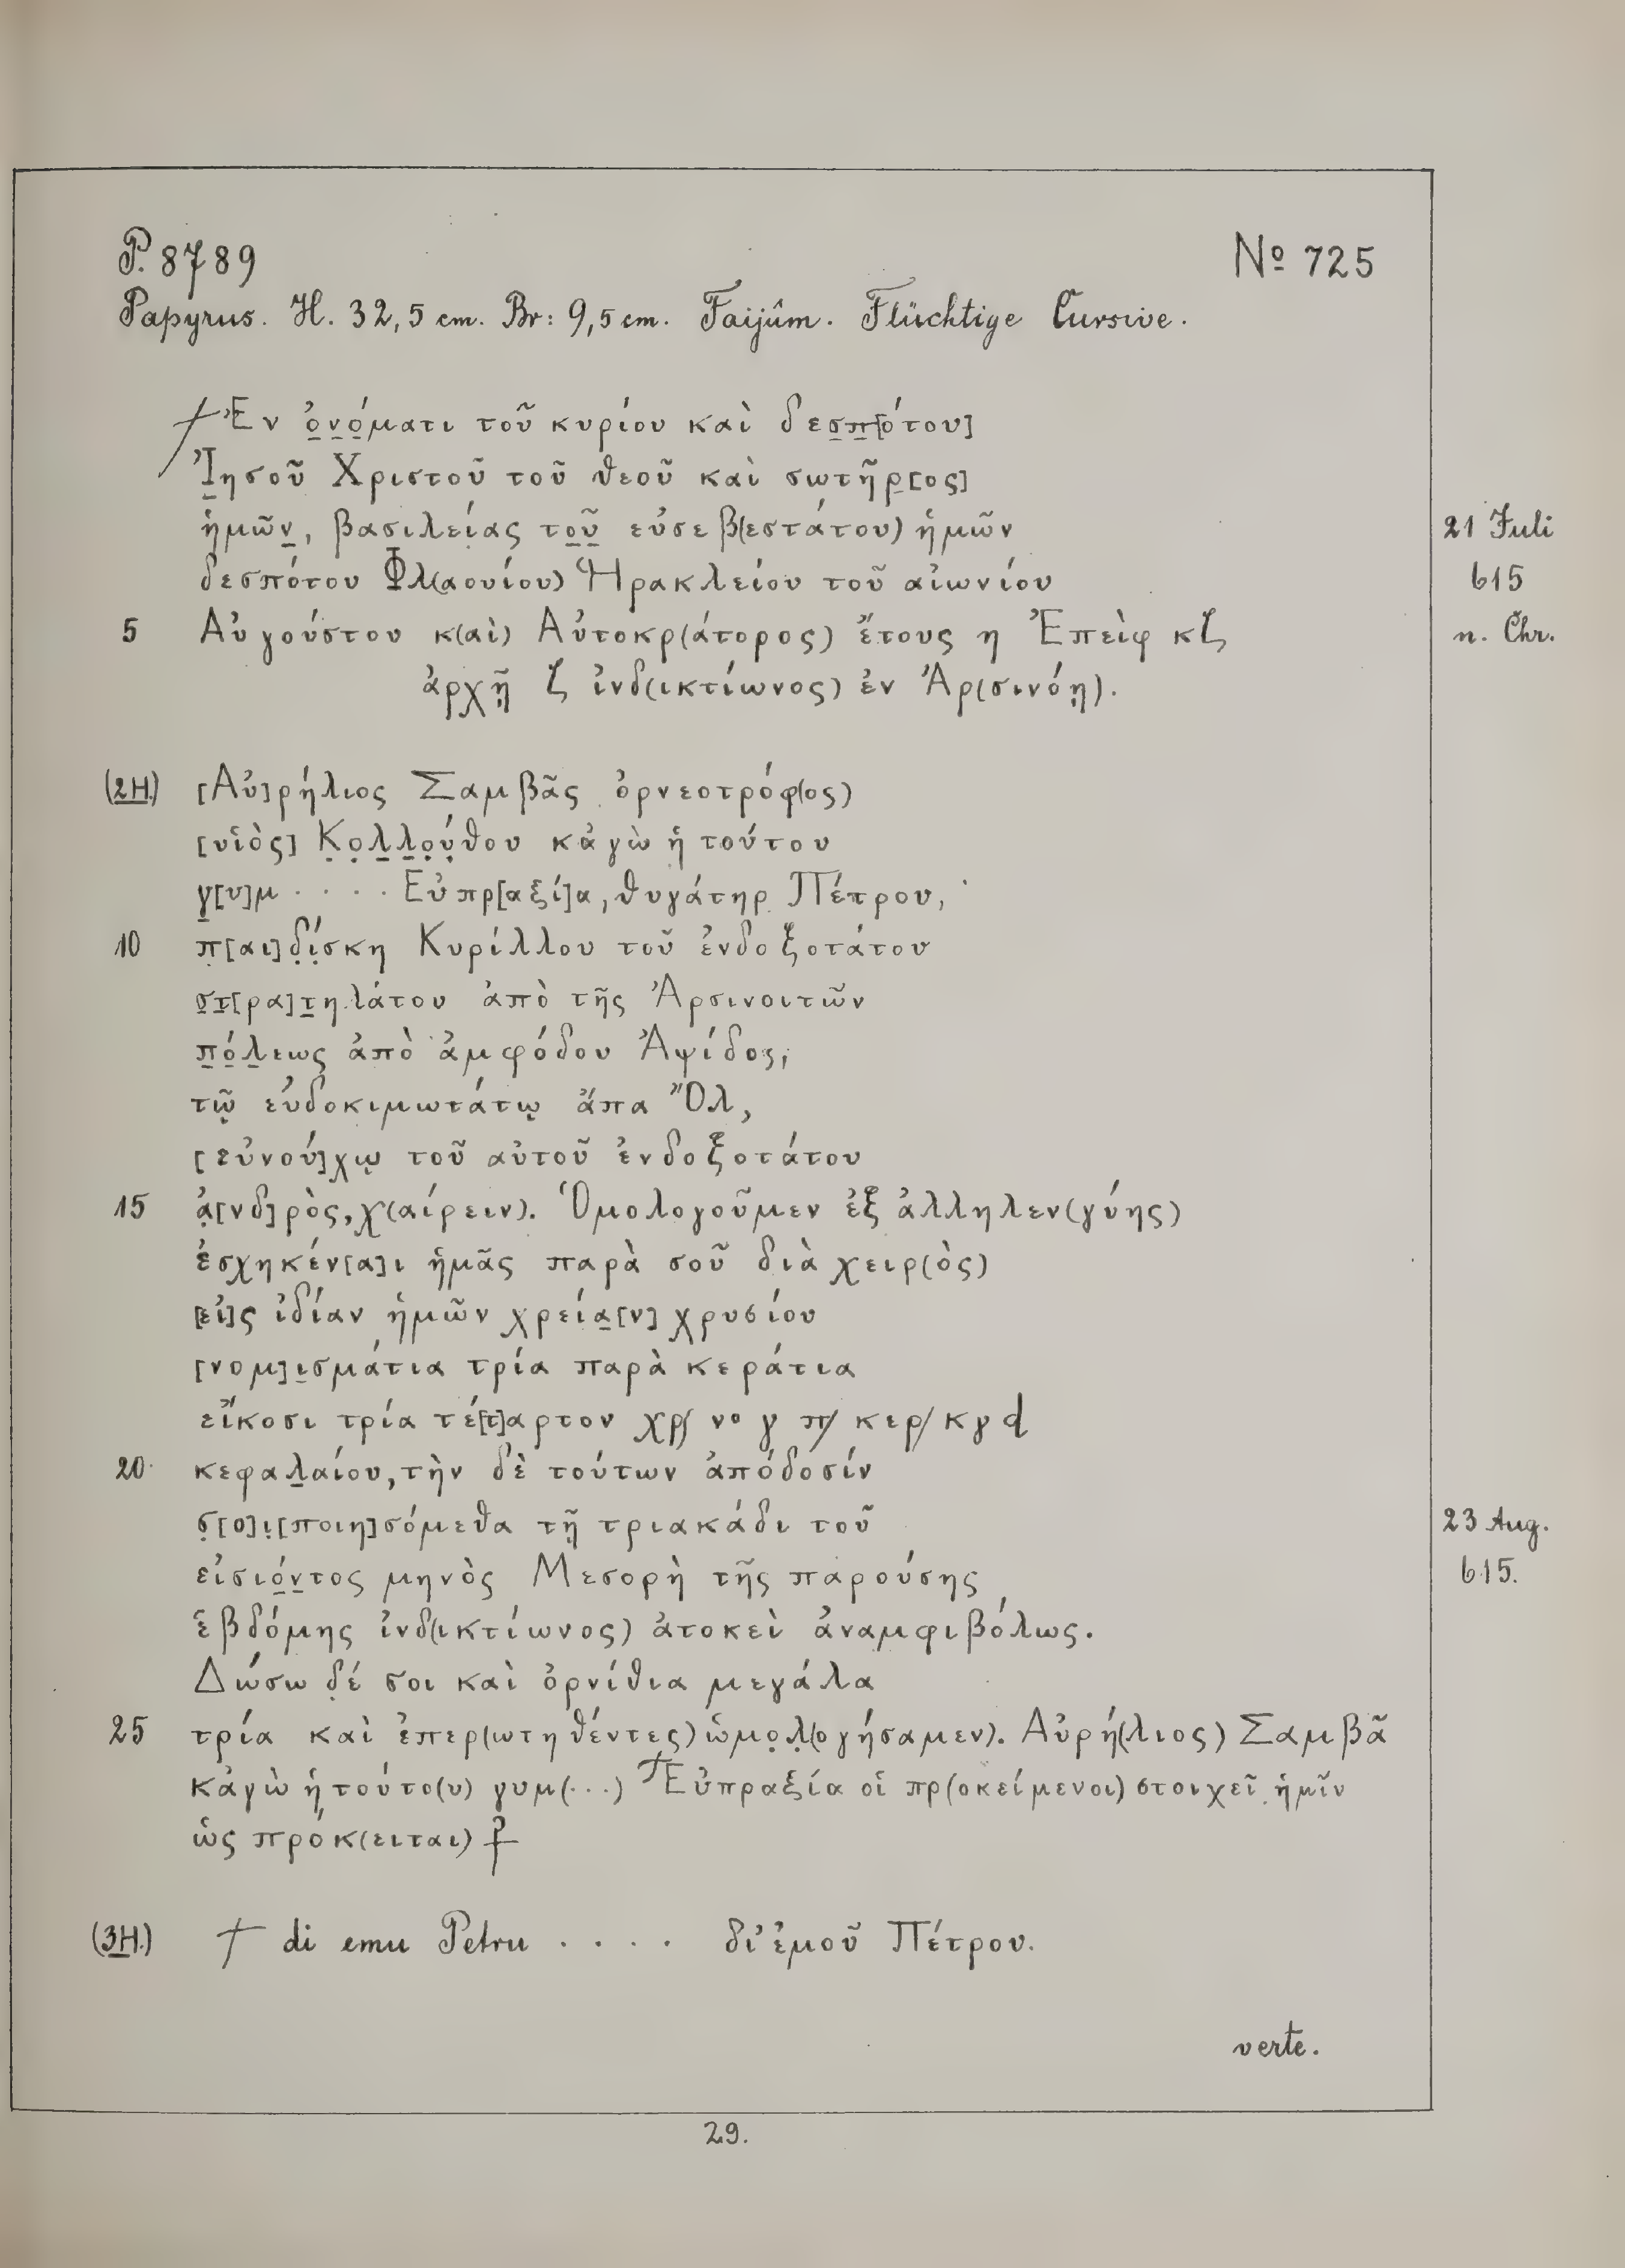 P. 8789 № 725
Papyrus. H. 32,5 cm. Br: 9,5 cm. Faijûm. Flüchtige Cursive.
☩ Ἐν ὀ̣ν̣ό̣ματι τοῦ κυρίου καὶ δεσ̣π̣[ότου]
Ἰ̣ησοῦ Χριστοῦ τοῦ θεοῦ καὶ σωτῆρ̣[ος]
ἡμῶν̣, βασιλείας το̣ῦ̣ εὐσεβ(εστάτου) ἡμῶν 21 Juli
δεσπότου Φλ(αουίου) Ἡρακλείου τοῦ αἰωνίου 615
5 Αὐγούστου κ(αὶ) Αὐτοκρ(άτορος) ἔτους η Ἐπεὶφ κζ n. Chr.
ἀρχῇ ζ ἰνδ(ικτίωνος) ἐν Ἀρ(σινόῃ).
(2H.) [Αὐ]ρήλιος Σαμβᾶς ὀρνεοτρόφ(ος)
[υἱὸς] Κ̣ο̣λ̣λ̣ο̣ύ̣θου κἀγὼ ἡ τούτου
γ̣[υ]μ · · · · Εὐπρ[αξί]α, θυγάτηρ Πέτρου,
10 π̣[αι]δ̣ί̣σκη Κυρίλλου τοῦ ἐνδοξοτάτου
σ̣τ̣[ρα]τ̣ηλάτου ἀπὸ τῆς Ἀρσινοιτῶν
π̣ό̣λ̣εως ἀπὸ ἀμφόδου Ἀψίδος,
τῷ εὐδοκιμωτάτῳ ἄπα Ὂλ,
[εὐνού]χῳ τοῦ αὐτοῦ ἐνδοξοτάτου
15 ἀ̣[νδ]ρὸς, χ(αίρειν). Ὁμολογοῦμεν ἐξ ἀλληλεν(γύης)
ἐσχηκέν[α]ι ἡμᾶς παρὰ σοῦ διὰ χειρ(ὸς)
[εἰ]ς ἰδίαν ἡμῶν χρεία̣[ν] χρυσίου
[νομ]ι̣σμάτια τρία παρὰ κεράτια
εἴκοσι τρία τέ[τ]αρτον χρ/ νο γ π/ κερ/ κγ d
20 κεφαλ̣αίου, τὴν δὲ τούτων ἀπόδοσίν
σ̣[ο]ι̣[ποιη]σόμεθα τῇ τριακάδι τοῦ 23 Aug.
εἰσιό̣ν̣τος μηνὸς Μεσορὴ τῆς παρούσης 615.
ἑβδόμης ἰνδ(ικτίωνος) ἀτοκεὶ ἀναμφιβόλως.
Δώσω δ̣έ σοι καὶ ὀρνίθια μεγάλα
25 τρία καὶ ἐπερ(ωτηθέντες) ὡμο̣λ̣(ογήσαμεν). Αὐρή(λιος) Σαμβᾶ
κἀγὼ ἡ τούτο(υ) γυμ(···) ☩ Εὐπραξία οἱ πρ(οκείμενοι) στοιχεῖ ἡμῖν
ὡς πρόκ(ειται) ⳨
(3H.) ☩ di emu Petru · · · · δι’ ἐμοῦ Πέτρου.
verte.
29.